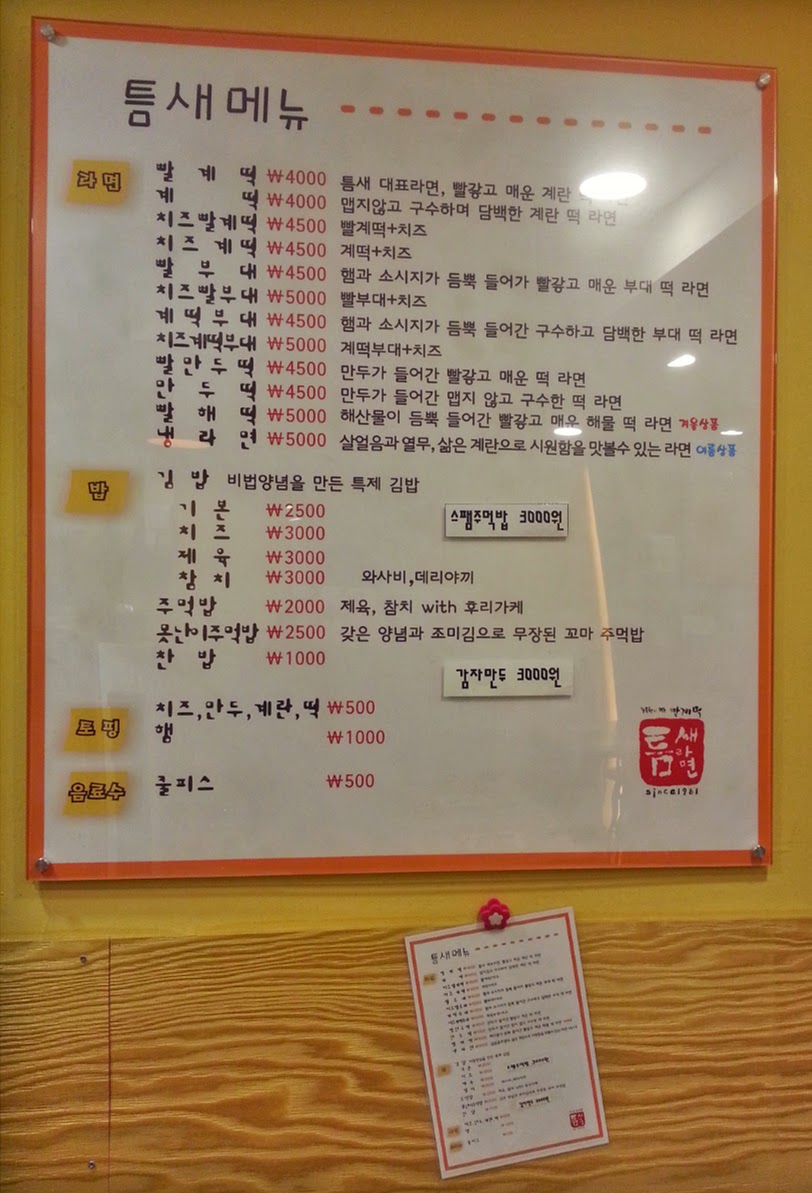 틈새메뉴
라면
빨계떡 ₩4000 틈새 대표라면, 빨갛고 매운 계란
계떡 ₩4000 맵지않고 구수하며 담백한 계란 떡 라면
치즈빨계떡 ₩4500 빨계떡+치즈
치즈계떡 ₩4500 계떡+치즈
빨부대 ₩4500 햄과 소시지가 듬뿍 들어가 빨갛고 매운 부대 떡 라면
치즈빨부대 ₩5000 빨부대+치즈
계떡부대 ₩4500 햄과 소시지가 듬뿍 들어간 구수하고 담백한 부대 떡 라면
치즈계떡부대 ₩5000 계떡부대+치즈
빨만두떡 ₩4500 만두가 들어간 빨갛고 매운 떡 라면
만두떡 ₩4500 만두가 들어간 맵지 않고 구수한 떡 라면
빨해떡 ₩5000 해산물이 듬뿍 들어간 빨갛고 매운 해물 떡 라면 겨울상품
냉라면 ₩5000 살얼음과 열무, 삶은 계란으로 시원함을 맛볼수 있는 라면 여름상품
밥
김밥 비법양념을 만든 특제 김밥
기본 ₩2500
스팸주먹밥 3000원
치즈 ₩3000
제육 ₩3000
참치 ₩3000 와사비,데리야끼
주먹밥 ₩2000 제육, 참치 with 후리가케
못난이주먹밥 ₩2500 갖은 양념과 조미김으로 무장된 꼬마 주먹밥
찬밥 ₩1000
감자만두 3000원
토핑
치즈,만두,계란,떡 ₩500
햄 ₩1000
음료수
쿨피스 ₩500
빨계떡
틈새라면
since1981
틈새메뉴